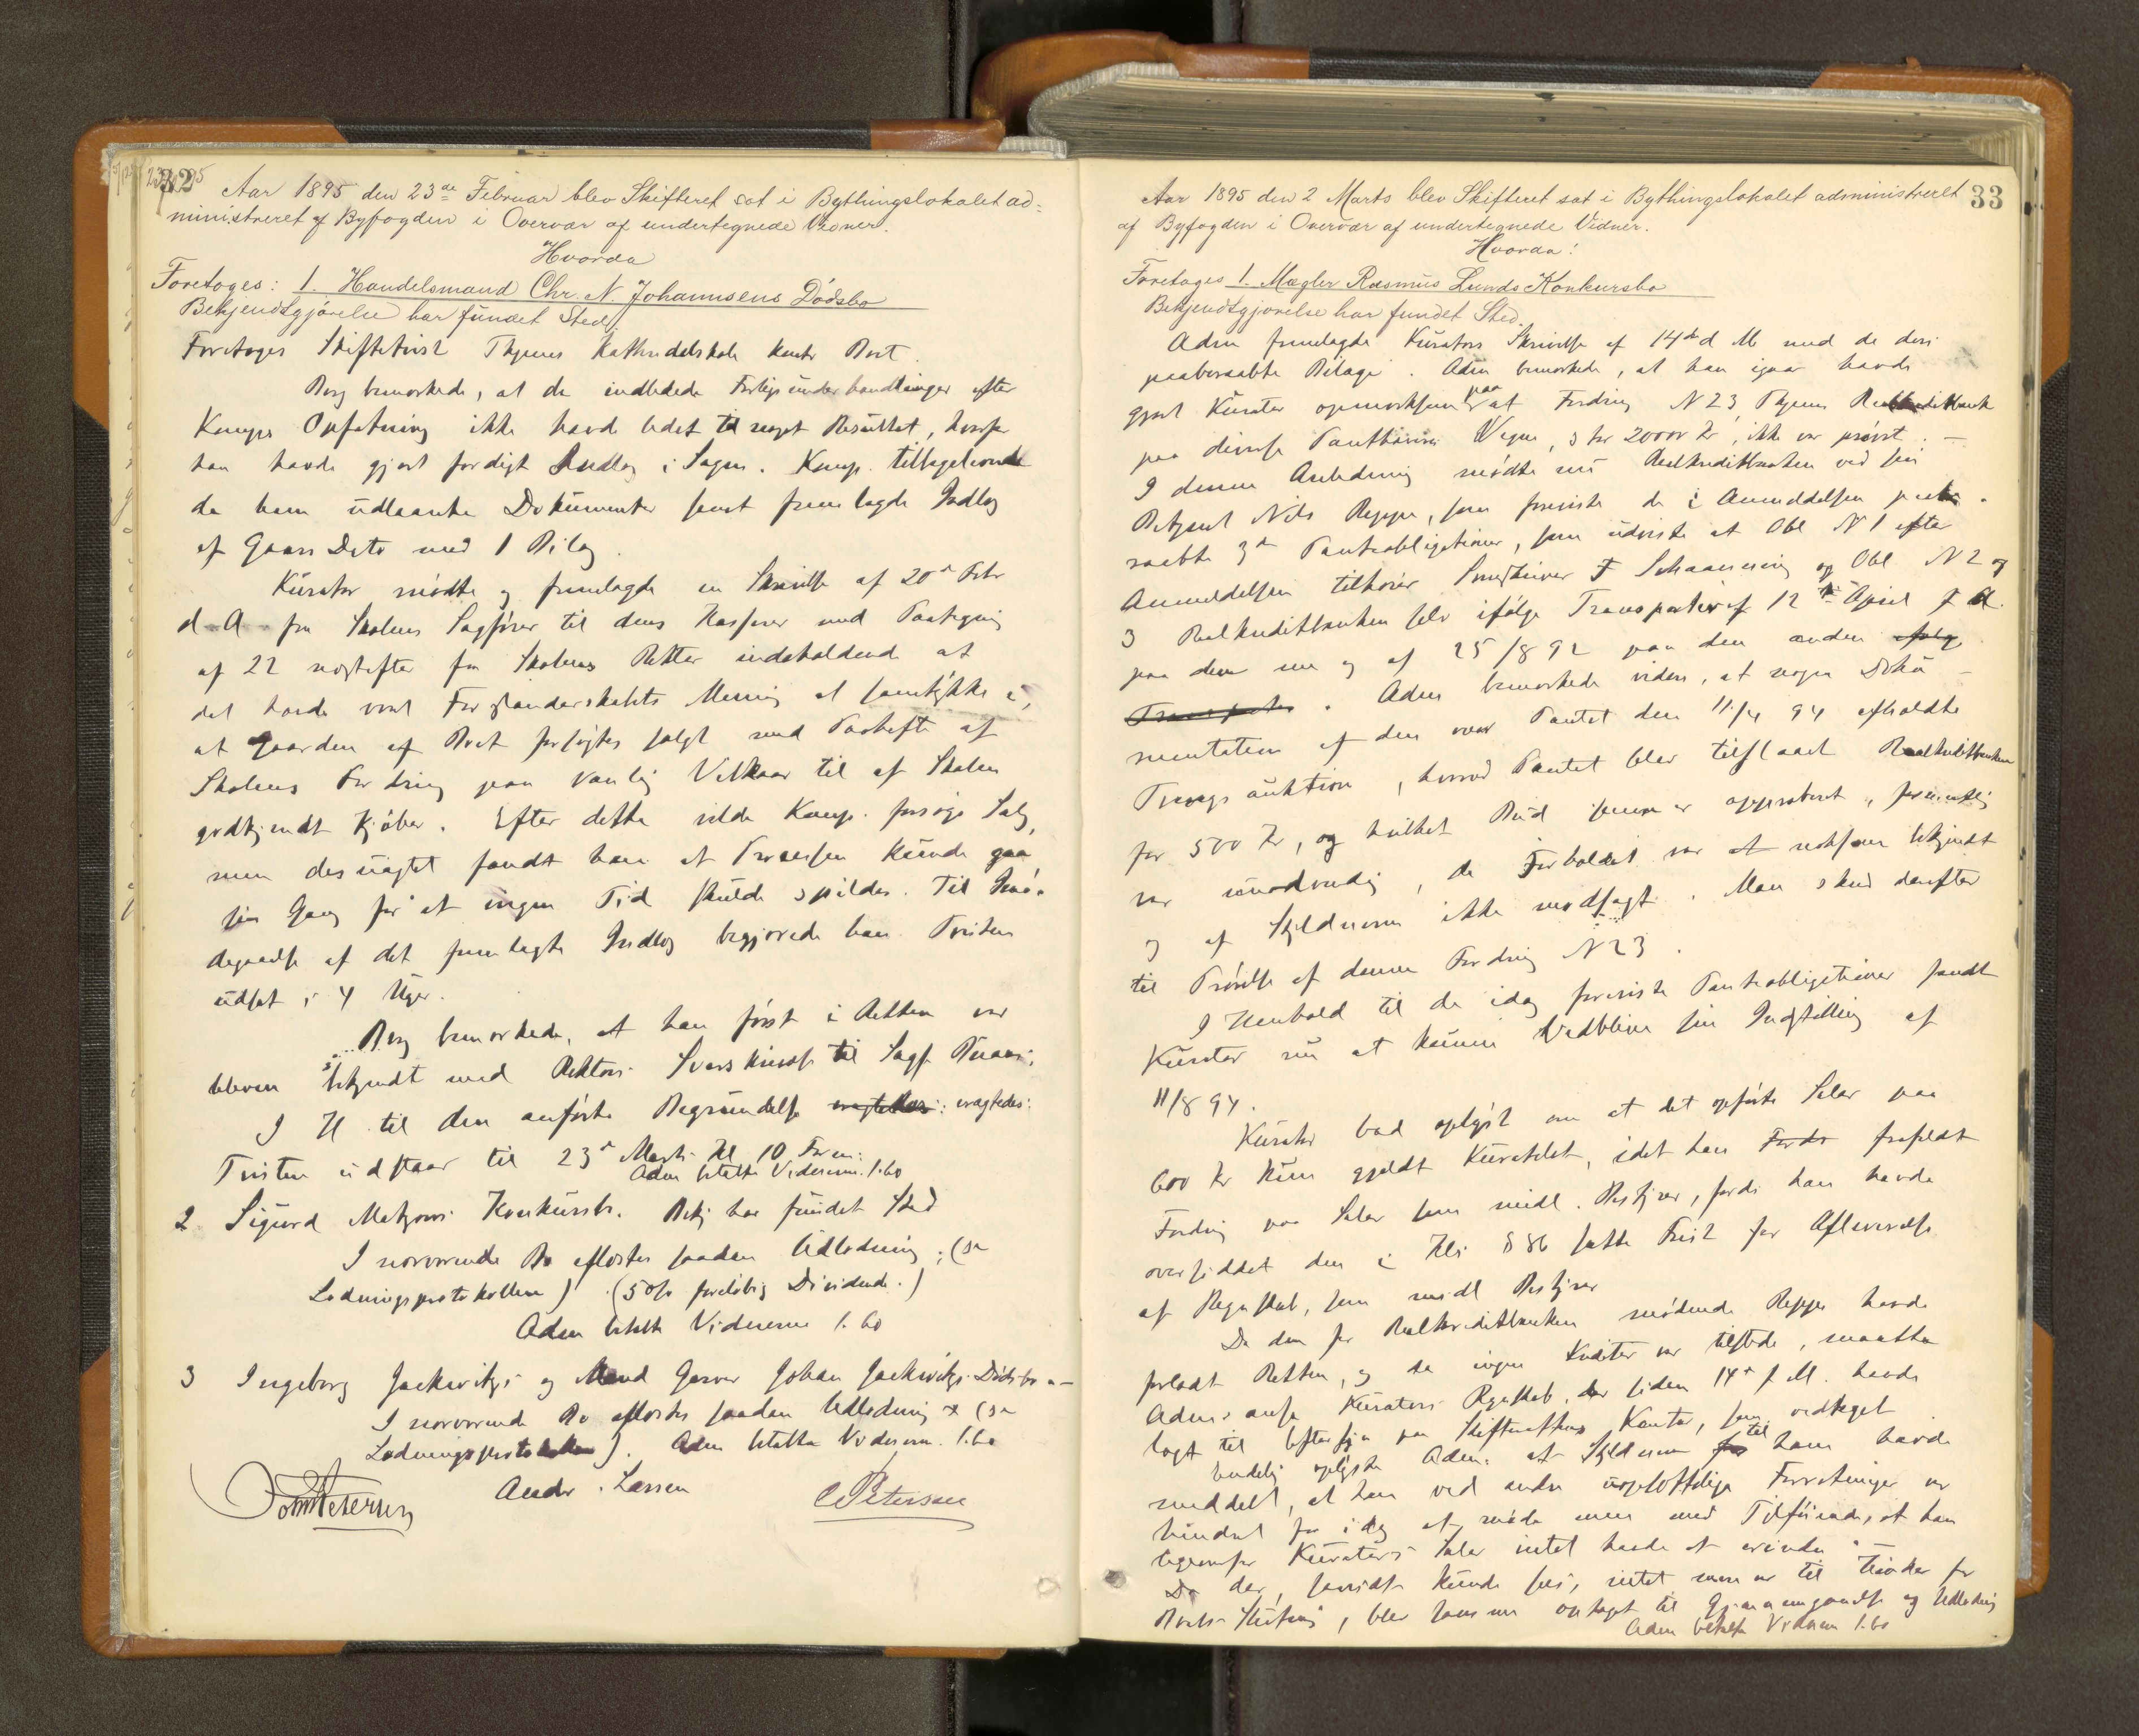 32
Aar 1895 den 23de Februar blev Skifteret sat i Bythingslokalet ad=
ministreret af Byfogden i Overvær af undertegnede Vidner.
Hvorda
Foretoges: 1. Handelsmand Chr. N. Johannsens Dødsbo
Bekjendtgjørelse har fundet Sted
Foretoges Skiftetvist Thjems Kathedralskole kontr Boet.
Berg bemærkede, at de indledede Forligsunderhandlinger efter
Kamps Opfatning ikke havde ledet til noget Resultat, hvorfor
han havde gjort færdigt Indlæg i Sagen. Kamp. tilbageleverede
de ham udlaante Dokumenter samt fremlagde Indlæg
af Gaars Dato med 1 Bilag.
Kurator mødte og fremlagde en Skrivelse af 20de Febr
d. A fra Skolens Sagfører til dens Kasserer med Paategning
af 22 næstefter fra Skolens Rektor indeholdende at
det havde vært Forstanderskabets Mening at samtykke i,
at Gaarden af Boet forsøgtes solgt med Paaheft af
Skolens Fordring paa vanlig Vilkaar til af Skolen
godkjendt Kjøber. Efter dette vilde Kamp. forsøge Salg,
men desuagtet fandt han at Processen kunde gaa
sin Gang for at ingen Tid skulde spildes. Til Imø-
degaaelse af det fremlagte Indlæg begjærede han Tvisten
udsat i 4 Uger.
Berg bemærkede, at han først i Retten var
bleven bekjendt med Rektors Svarskrivelse til Sagf.
I H. til den anførte Begrundelse vragtedes:
Tvisten udstaar til 23de Marts Kl 10 Form:
Adm betalte Vidnerne 1.60
2. Sigurd Konkursbo. Bekj har fundet Sted
I nærværende Bo afløstes saadan Udlodning: (se
Lodningsprotokollen) (5% foreløbig Dividende.)
Adm betalte Vidnerne 1.60
3 Ingeborg Jackwitz's og Mand Garver Johan Jackwitz's Dødsbo
I nærværende Bo afløstes saadan Udlodning (se
Lodningsprotokollen). Adm betalte Vidnerne. 1.60
Andr. Larsen
C Petersen
33
Aar 1895 den 2 Marts blev Skifteret sat i Bythingslokalet administreret
af Byfogden i Overvær af undertegnede Vidner.
Hvorda:
Foretoges 1. Mægler Rasmus Lunds Konkursbo
Bekjendtgjørelse har fundet Sted.
Adm fremlagde Kurators Skrivelse af 14de d M med de deri
paaberaabte Bilage. Adm bemærkede, at han igaar havde
gjort Kurator opmærksom paa at Fordring N 23, Thjems Realkreditbank
paa diverse Panthavers Vegne, stor 20000 Kr, ikke var prøvet. —
I denne Anledning mødte nu Realkreditbanken ved sin
Betjent Nils Reppe, som foreviste de i Anmeldelsen paabe-
raabte 3de Panteobligationer, som udviste at Obl N 1 efter
Anmeldelsen tilhører F Schaanning og Obl N 2 og
3 Realkreditbanken selv ifølge Transporter af 12te April f A.
paa den ene og af 25/8 92 paa den anden
Transporter. Adm bemærkede videre, at nogen Doku-
mentation af den over Pantet den 11/4 94 afholdte
Tvangsauktion, hvorved Pantet blev tilslaaet Realkreditbanken
for 500 Kr, og hvilket Bud senere er approberet, formentlig
var unødvendig, da Forholdet var at nøksom bekjendt
og af Skyldneren ikke modsagt. Man skred derefter
til Prøvelse af denne Fordring N 23.
I Henhold til de idag foreviste Panteobligationer fandt
Kurator nu at kunne Vedblive sin Indstilling af
11/8 94.
Kurator bad oplyst om at det opførte Salær paa
600 Kr kun gjaldt Kuratelet, idet han frafaldt
Fordring paa Salær som midl. Bestyrer, fordi han havde
oversiddet den i Kl. § 86 satte Frist for Afleverelse
af Regnskab, som midl Bestyrer
Da den for Realkreditbanken mødende Reppe havde
forladt Retten, og da ingen Kreditor var tilstede, maatte
Adm. anse Kurators Regnskab, der siden 14de f. M. havde
lagt til Eftersyn paa Skifterettens Kontor, som vedtaget
Endelig oplyste Adm. at Skyldneren til ham havde
meddelt, at han ved andre uopsættelige Forretninger var
hindret fra idag at møde men med Tilføiende, at han
ligeoverfor Kurators Salær intet havde at erindre. —
Da der, saavidt kunde sees, intet mere var til Hinder for
Boets Slutning, blev samme optaget til Gjennemgaaelse og Udlodning
Adm betalte Vidnerne 1.60